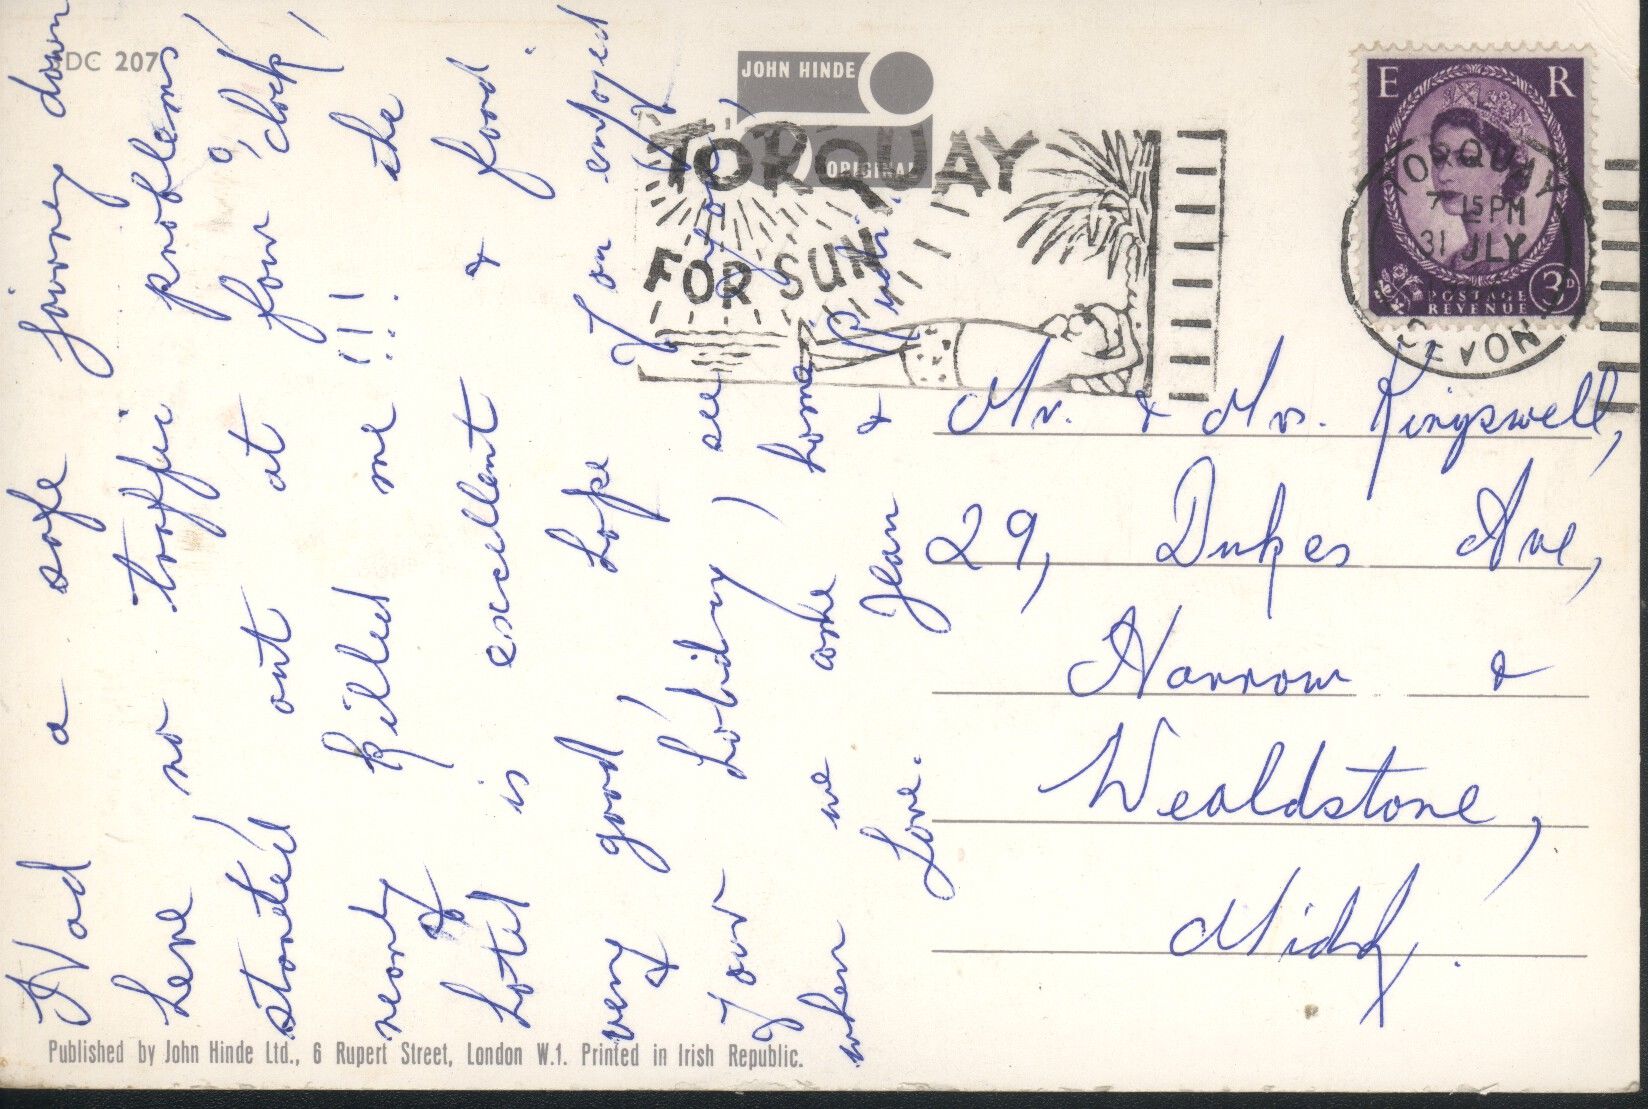 DC 207
JOHN HINDE
ORIGINAL
TORQUAY
FOR SUN
E R
POSTAGE
REVENUE
3D
TORQUAY
7 15 PM
31 JLY
DEVON
Had a safe journey down
here no traffic problems,
started out at four o'clock,
nearly killed me!!! the
hotel is excellent & food
very good, Hope you enjoyed
& your holiday, see you
when we come home,
Love. Jean &
Mr. & Mrs. Kingswell,
29, Dukes Ave,
Harrow &
Wealdstone,
Middx.
Published by John Hinde Ltd., 6 Rupert Street, London W.1. Printed in Irish Republic.